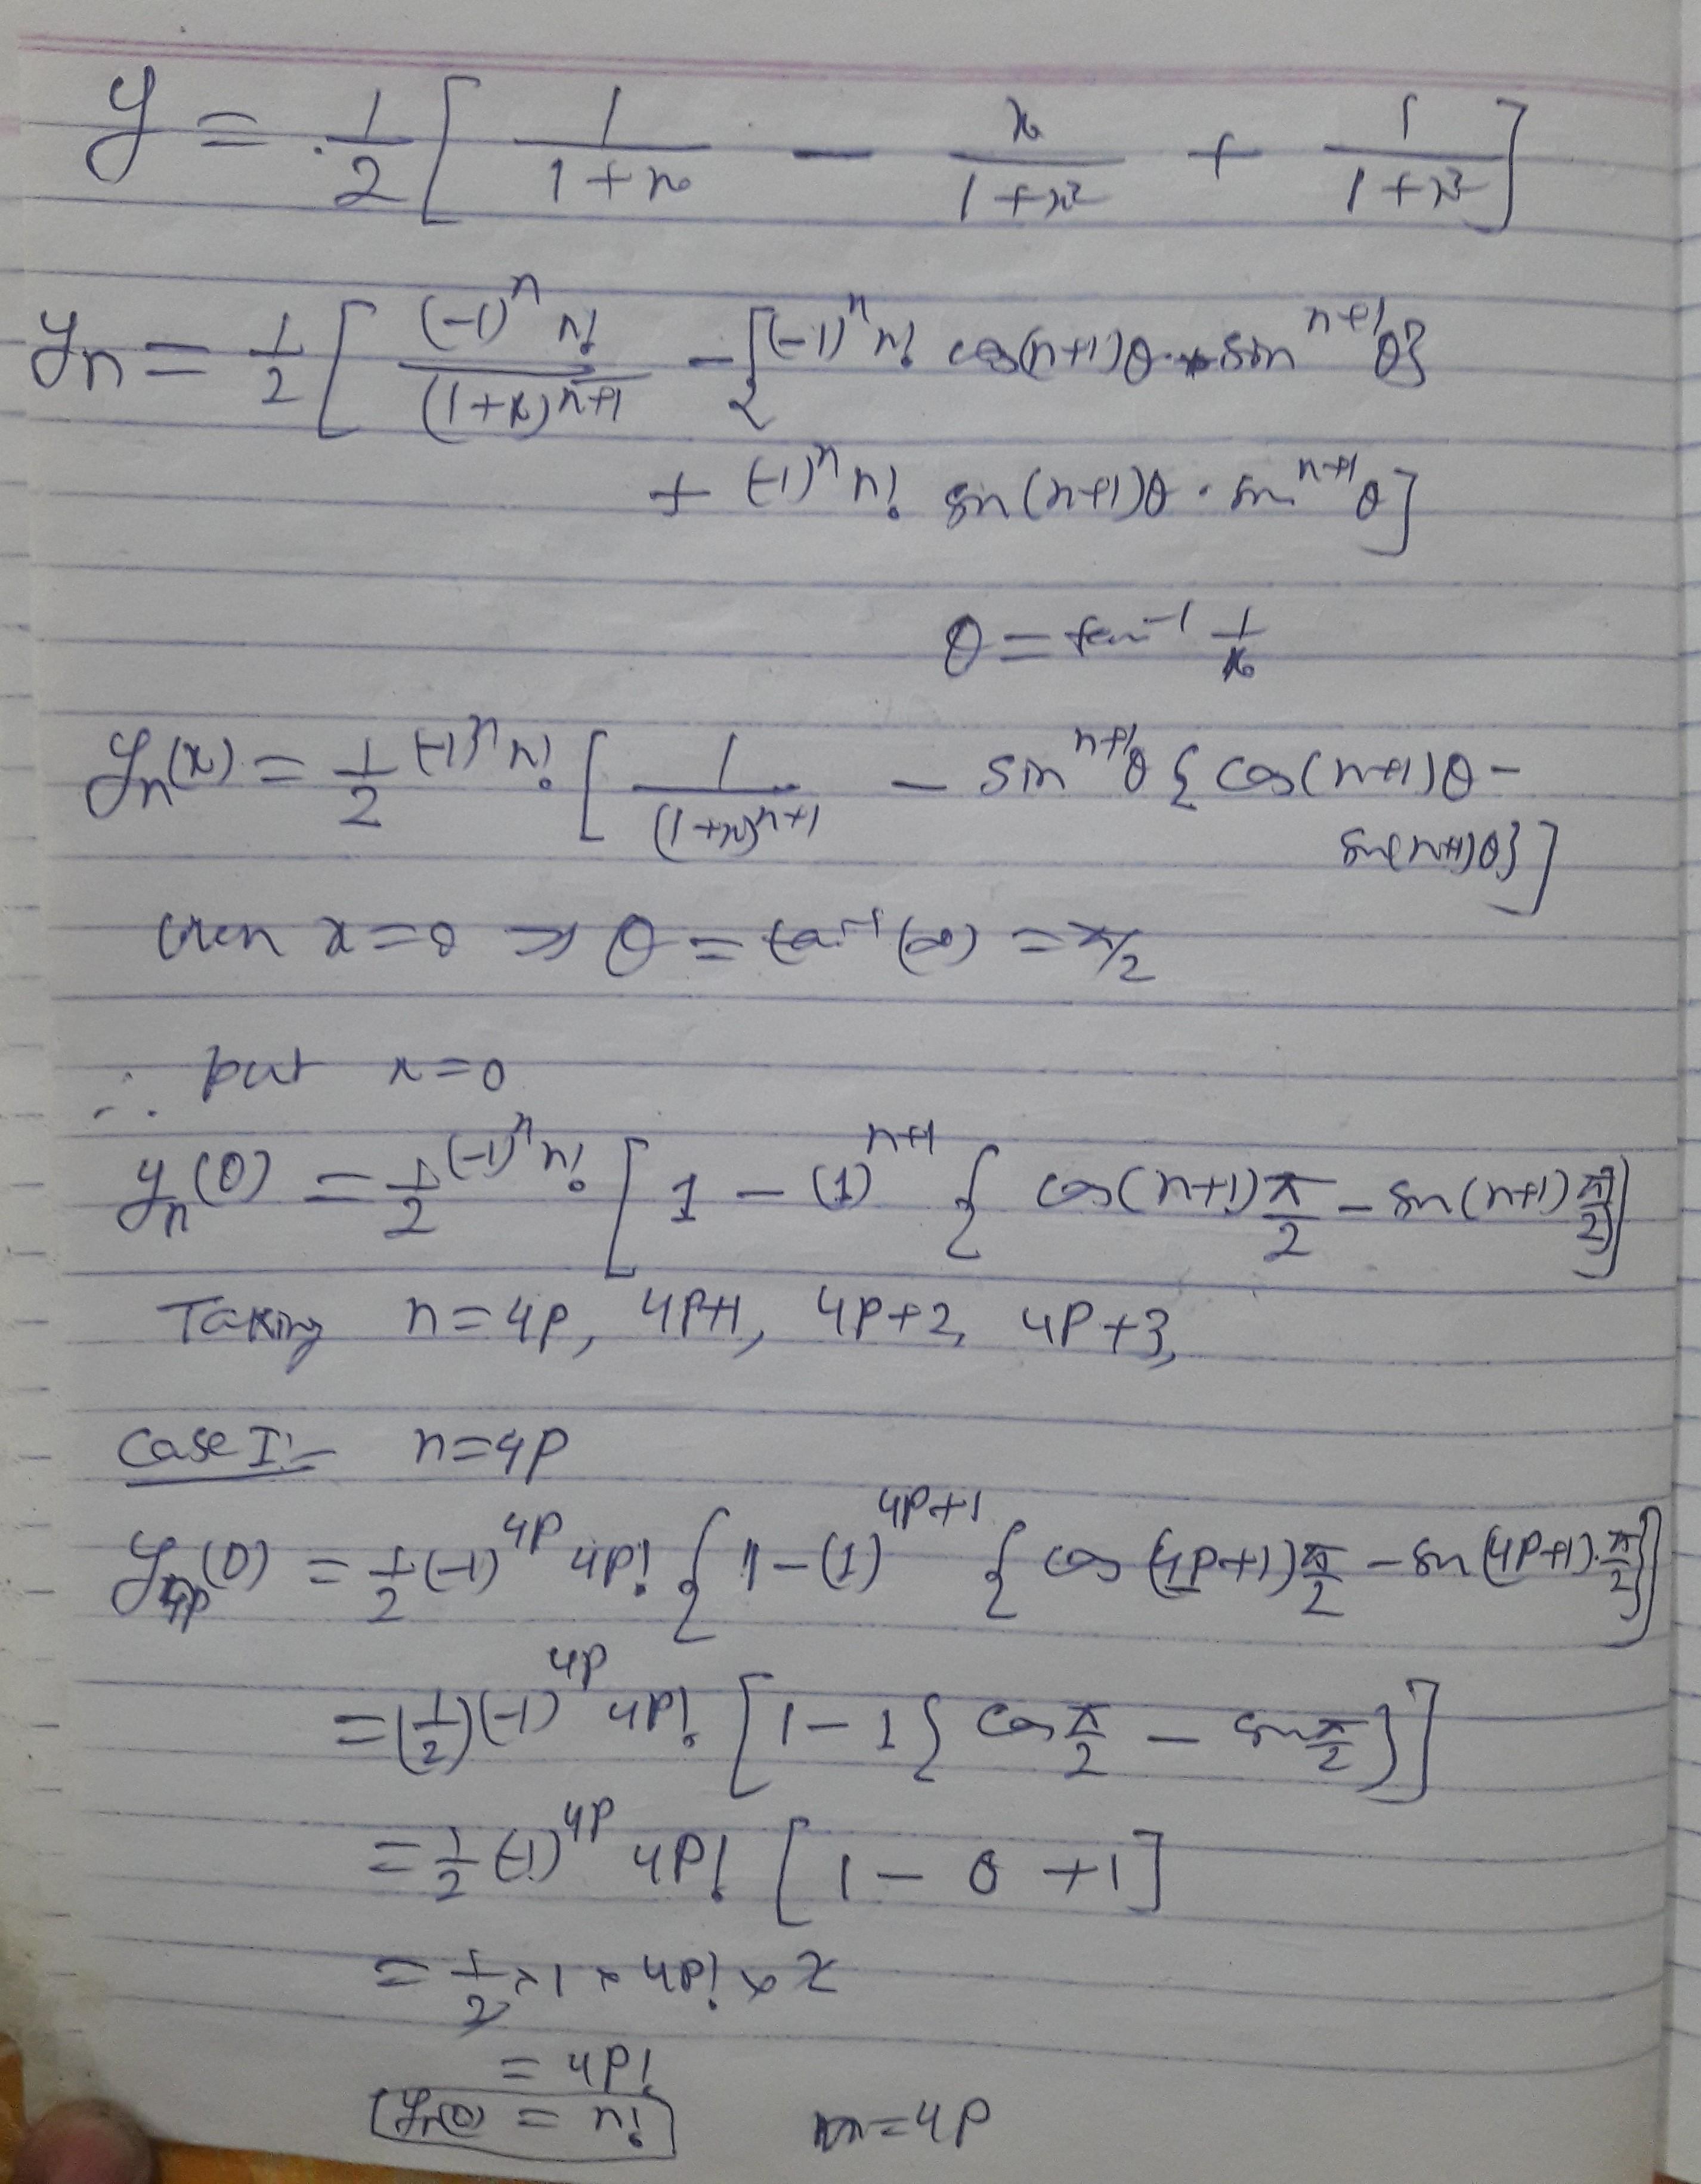 y = 1/2 [ 1/(1+x) - x/(1+x²) + 1/(1+x²) ]
yₙ = 1/2 [ (-1)ⁿ n!/(1+x)ⁿ⁺¹ - {(-1)ⁿ n! cos(n+1)θ · sinⁿ⁺¹θ}
+ (-1)ⁿ n! sin(n+1)θ · sinⁿ⁺¹θ ]
θ = tan⁻¹ 1/x
yₙ(x) = 1/2 (-1)ⁿ n! [ 1/(1+x)ⁿ⁺¹ - sinⁿ⁺¹θ { cos(n+1)θ -
sin(n+1)θ} ]
when x=0 ⇒ θ = tan⁻¹(∞) = π/2
∴ put x=0
yₙ(0) = 1/2 (-1)ⁿ n! [ 1 - (1)ⁿ⁺¹ { cos(n+1)π/2 - sin(n+1)π/2 } ]
Taking n=4p, 4p+1, 4p+2, 4p+3,
Case I:- n=4p
y₄ₚ(0) = 1/2 (-1)⁴ᵖ 4p! { 1-(1)⁴ᵖ⁺¹ { cos (4p+1)π/2 - sin (4p+1)·π/2 } }
= (1/2)(-1)⁴ᵖ 4p! [ 1-1 { cos π/2 - sin π/2 } ]
= 1/2 (-1)⁴ᵖ 4p! [ 1 - 0 + 1 ]
= 1/2 × 1 × 4p! × 2
= 4p!
yₙ(0) = n! n=4p